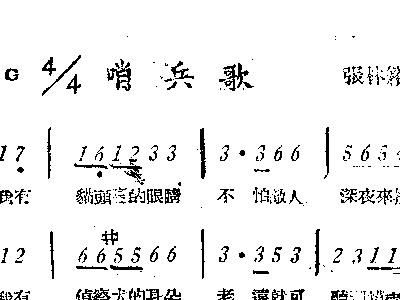 G 4/4 哨兵歌 張林
17 | 1612 33 | 3·366 | 565
我有 貓頭 的眼睛 不 怕敵人 深夜來
12 | 6655 66 | 3·353 | 2311
我有 偵察犬的耳朵 老遠就可 聽